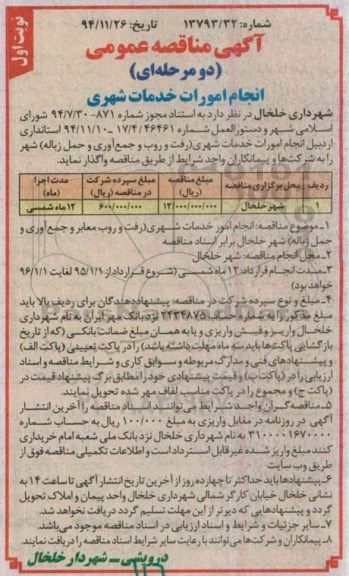 نوبت اول
شماره: ۱۳۷۹۳/۳۲ تاریخ: ۹۴/۱۱/۲۶
آگهی مناقصه عمومی
(دو مرحله‌ای)
انجام امورات خدمات شهری
شهرداری خلخال در نظر دارد به استناد مجوز شماره ۸۷۱-۹۴/۷/۳۰ شورای
اسلامی شهر و دستورالعمل شماره ۱۷/۴/۴۶۴۶۱-۹۴/۱۱/۱۰ استانداری
اردبیل انجام امورات خدمات شهری (رفت و روب و جمع‌آوری و حمل زباله) شهر
را به شرکت‌ها و پیمانکاران واجد شرایط از طریق مناقصه واگذار نماید.
ردیف محل برگزاری مناقصه مبلغ مناقصه (ریال) مبلغ سپرده شرکت در مناقصه (ریال) مدت اجرا (ماه)
۱ شهر خلخال ۱۲/۰۰۰/۰۰۰/۰۰۰ ۶۰۰/۰۰۰/۰۰۰ ۱۲ ماه شمسی
۱-موضوع مناقصه: انجام امور خدمات شهری (رفت و روب معابر و جمع آوری و
حمل زباله) شهر خلخال برابر اسناد مناقصه
۲-محل انجام مناقصه: شهر خلخال
۳-مدت انجام قرارداد: ۱۲ ماه شمسی (شروع قرارداد از ۹۵/۱/۱ لغایت ۹۶/۱/۱
خواهد بود)
۴-مبلغ و نوع سپرده شرکت در مناقصه: پیشنهاددهندگان برای ردیف بالا باید
مبلغ مذکور را به شماره حساب ۲۴۳۴۸۷۵ نزد بانک مهر ایران به نام شهرداری
خلخال واریز و فیش واریزی و یا به همان مبلغ ضمانت بانکی (که از تاریخ
بازگشایی پاکت‌ها باید سه ماه مهلت داشته باشد) را در پاکت تضمینی (پاکت الف)
و پیشنهادهای فنی و مدارک مربوطه و سوابق کاری و شرایط مناقصه و اسناد
ارزیابی را در (پاکت ب) و قیمت پیشنهادی خود را مطابق برگ پیشنهاد قیمت در
(پاکت ج) و مجموع را در پاکت مناسب لفاف مهر شده تحویل نمایند.
۵-مناقصه‌گران واجد شرایط می‌توانند اسناد مناقصه را آخرین انتشار
آگهی در روزنامه در مقابل واریزی به مبلغ ۱۰۰/۰۰۰ ریال به حساب شماره
۳۱۰۰۰۰۱۶۷۰۰۰۰ به نام شهرداری خلخال نزد بانک ملی شعبه امام خریداری
کنند مبلغ واریز شده غیر قابل استرداد است و اطلاعات تکمیلی مناقصه فوق از
طریق وب سایت
۶-پیشنهادها باید حداکثر تا چهارده روز از آخرین تاریخ انتشار آگهی تا ساعت ۱۴ به
نشانی خلخال خیابان کارگر شمالی شهرداری خلخال واحد پیمان و املاک تحویل
گردد و پیشنهادهایی که دیرتر از این مهلت تسلیم گردد دریافت نخواهد شد.
۷-سایر جزئیات و شرایط و اسناد ارزیابی در اسناد مناقصه موجود می‌باشد.
۸-پیمانکاران و شرکت‌ها می‌توانند با رعایت سایر شرایط اسناد مناقصه را دریافت نمایند.
درویشی - شهردار خلخال